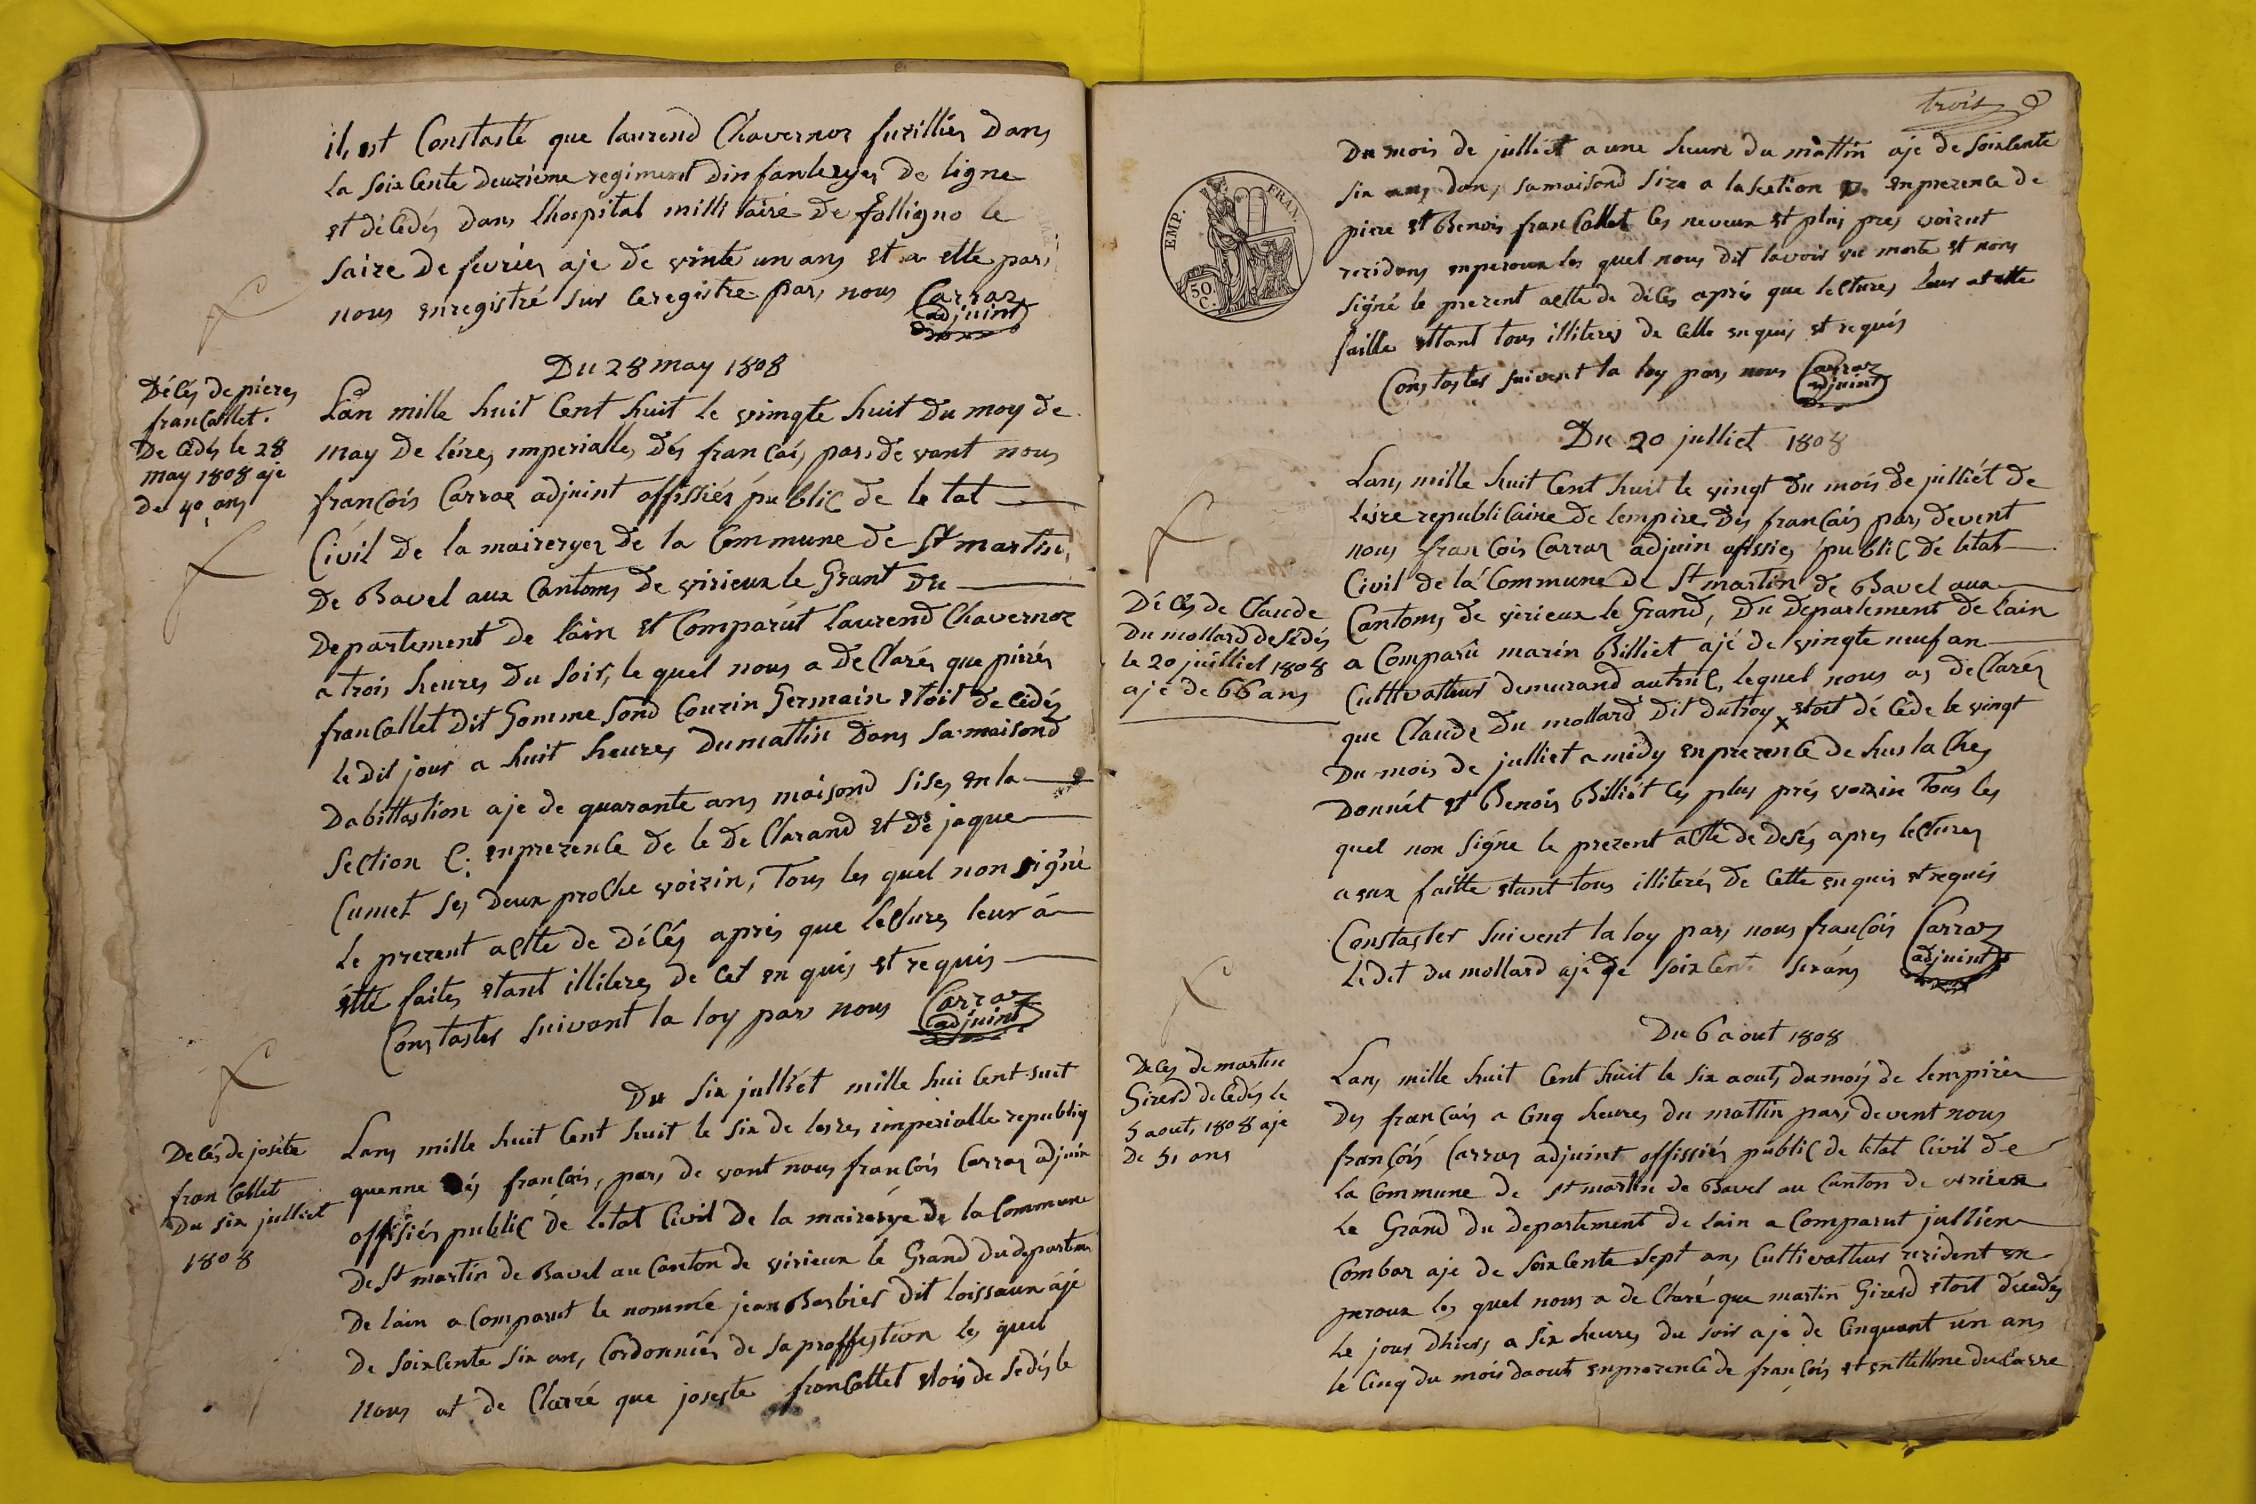 il, est Constasté que laurend Chavernoz fuzilliér Dans
La soixCente Deuzième regiment Dinfanleryes De ligne
et déCédés dans L'hospital millitaire de folligno le
saize De fevriér aje de vinte un ans et a etté par
nous enregistré sur Ceregistre par, nous Carraz
adjuint
Du 28 may 1808
DéCés de pieres
franCollet.
DeCédés le 28
may 1808 aje
De 40 ans
Lan mille huit Cent huit le vingte huit Du moy de
may De léres imperialles dés franCais par, de vant nous
franCois Carraz adjuint offissiér publiC de letat
Civil De la maireryer De la Commune de St martin,
De Bavel aux Cantoms De virieux le Grant Du
Departement De lain et Comparût Laurend Chavernoz
a trois heures Du soir, le quel nous a de Clarér que pirér
franCollet Dit Gomme sond Couzin Germain etoit de Cédés
le dit jour a huit heures Dumattin Dans Sa maisond
Dabittastion aje de quarante ans maisond sises en la
section C. enprezenCe De le DeClarand et De jaque
Cumet ses Deux proChe voizin, Tous les quel non signé
Le prezent aCtte de DéCés aprés que leCtures leur â
étté faites etant illiteres de Cet en quis et requis
Constaster suivant la loy par nous Carraz
adjuint
Du six julliét mille hui Cent suit
DeCés de josète
franCollet
Du six julliet
1808
Lans mille huit Cent huit le six de leres imperialle republiq
quenne Dés franCois, par, de vant nous franCois Carraz adjuin
offisiér publiC de letat Civil De la mairérye de la Commune
De St martin de Bavel au Canton de virieux le Grand du departem
De lain a Comparut le nommée jean Barbier dit loissaux ajé
De soixCente six an, Cordonniér de sa proffestion les quel
nous at de Clarré que joseste franCollet etois de sedés le
trois
EMP. FRAN.
50 C.
Du mois de julliet a une heure du mattin aje de SoixCente
six ans, dans sa maisond Size a la section enprezenCe de
piere et Benois franCollet Ces neveux et plus pres voizint
rezidans enperoux les quel nous dit lavoir vu morte et nons
signé le prezent aCtte de déCés aprés que leCtures leur at ette
faille ettant tous illiteres de Celle enquis et requis
Constoster suivent la loy par, nous Carraz
adjuint
Du 20 julliet 1808
DéCés de Claude
Dumollard deSédés
le 20 juilliet 1808
ajé de 66 ans
Lans mille huit Cent huit le vingt Du mois de julliét de
leere republiCaine de lempire, Dés franCais par, devent
nous franCois Carraz adjuin offissiér publiC de letat
Civil de la Commune De St martin de Bavel aux
Cantoms de virieux le Grand, Du Departement de lain
a Comparû marin Billiet ajé de vingte neuf an
Culttivatteur demurand autruC, lequel nous as deClarér
que Claude Du mollard Dit dutroy etoit déCéde le vingt
Du mois de julliet a midy enprezenCe de hus la Ches
Donnét et Benois Billiét Ces plus prés voizin Tous les
quel non signe le prezent aCtte de desés apres leCtures
a eux faitte etant tous illiterés de Cette enquis et requis
Constaster suivent la loy par, nous franCois Carraz
adjuint
Ledit du mollard ajé de soixCent sixâns
Du 6 aout 1808
DeCes de martin
Girerd deCédés le
5 aout, 1808 aje
De 51 ans
Lans mille huit Cent huit le six aout, du mois de lempirés
Des franCais a Cinq heures du mattin par, devent nous
franCois Carraz adjuint offissiér publiC de letat Civil de
La Commune de St martin de Bavel au Canton de virieux
Le Grand du departement de lain a Comparut jullien
Combaz aje de SoixCente sept an, Culttivatteur rezident en
peroux les quel nous a de Claré que martin Girerd etoit deCedés
Le jour Dhiers, a six heures du soir aje de Cinquant un ans
le Cinq du mois daout enprezenCe de franCois et entellme duCarre